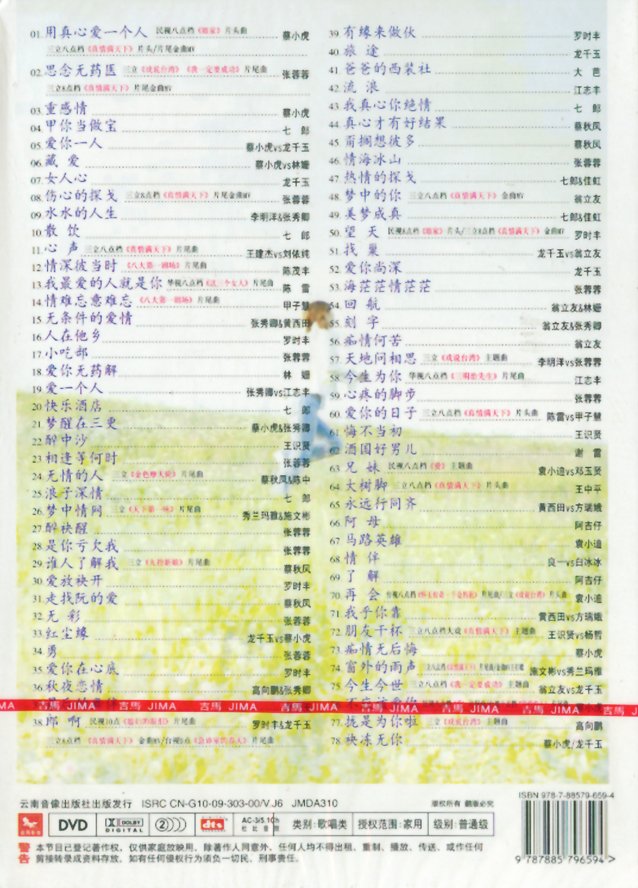 01.用真心爱一个人 民视八点档《娘家》片头曲 蔡小虎
三立八点档《真情满天下》片头/片尾金曲MV
02.思念无药医 三立《戏说台湾》《我一定要成功》片尾曲 张蓉蓉
三立8点档《真情满天下》片尾金曲MV
03.重感情 蔡小虎
04.甲你当做宝 七郎
05.爱你一人 蔡小虎vs龙千玉
06.藏 爱 蔡小虎vs林姗
07.女人心 龙千玉
08.伤心的探戈 三立8点档《真情满天下》片尾金曲MV 张蓉蓉
09.水水的人生 李明洋&张秀卿
10.散 饮 七 郎
11.心 声 三立八点档《真情满天下》片尾曲 王建杰vs刘依纯
12.情深彼当时 《八大第一剧场》片尾曲 陈茂丰
13.我最爱的人就是你 华视八点档 片尾曲 陈 雷
14.情难忘意难忘 《八大第一剧场》片尾曲 甲子慧
15.无条件的爱情 张秀卿&黄西田
16.人在他乡 罗时丰
17.小吃部 张蓉蓉
18.爱你无药解 林 姗
19.爱一个人 张秀卿vs江志丰
20.快乐酒店 七 郎
21.梦醒在三更 蔡小虎&张蓉蓉
22.醉中沙 王识贤
23.相逢等何时 张蓉蓉
24.无情的人 三立《金色摩天轮》片尾曲 蔡秋凤&陈中
25.浪子深情 七 郎
26.梦中情网 三立《天下第一味》片尾曲 秀兰玛雅&施文彬
27.醉袂醒 张蓉蓉
28.是你亏欠我 张蓉蓉
29.谁人了解我 三立 片尾曲 蔡秋凤
30.爱放袂开 罗时丰
31.走找阮的爱 蔡秋凤
32.无 彩 张蓉蓉
33.红尘缘 龙千玉vs蔡小虎
34.勇 张蓉蓉
35.爱你在心底 罗时丰
36.秋夜恋情 高向鹏&张秀卿
38.郎 啊 民视10点 片尾曲 罗时丰&龙千玉
三立8点档《真情满天下》金曲MV/台视8点 片尾曲
39.有缘来做伙 罗时丰
40.旅 途 龙千玉
41.爸爸的西装社 大 芭
42.流 浪 江志丰
43.我真心你绝情 七 郎
44.真心才有好结果 蔡秋凤
45.甭搁想彼多 蔡秋凤
46.情海冰山 张蓉蓉
47.热情的探戈 七郎&佳虹
48.梦中的你 三立八点档《真情满天下》金曲MV 翁立友
49.美梦成真 七郎&佳虹
50.望 天 民视8点档《娘家》片头/三立8点档《真情满天下》金曲MV 罗时丰
51.找 巢 龙千玉vs翁立友
52.爱你尚深 龙千玉
53.海茫茫情茫茫 张蓉蓉
54.回 航 翁立友&林姗
55.刻 字 翁立友&张秀卿
56.痴情何苦 翁立友
57.天地问相思 三立《戏说台湾》主题曲 李明洋vs张蓉蓉
58.今生为你 华视八点档《三明治先生》片尾曲 江志丰
59.心疼的脚步 张蓉蓉
60.爱你的日子 三立八点档《真情满天下》片头曲 陈雷vs甲子慧
61.悔不当初 王识贤
62.酒国好男儿 谢 雷
63.兄 妹 民视八点档《爱》主题曲 袁小迪vs邓玉贤
64.大树脚 三立八点档《真情满天下》片头曲 王中平
65.永远行同齐 黄西田vs方瑞娥
66.阿 母 阿吉仔
67.马路英雄 袁小迪
68.情 伴 良一vs白冰冰
69.了 解 阿吉仔
70.再 会 片尾曲/三立《戏说台湾》片头曲 袁小迪
71.我乎你靠 黄西田vs方瑞娥
72.朋友干杯 三立八点档大戏《真情满天下》主题曲 王识贤vs杨哲
73.痴情无后悔 蔡小虎
74.窗外的雨声 施文彬vs秀兰玛雅
75.今生今世 三立八点档《我一定要成功》主题曲 翁立友vs龙千玉
吉馬 JIMA 吉馬 JIMA 吉馬 JIMA 吉馬 JIMA
77.拢是为你啦 三立《戏说台湾》主题曲 高向鹏
78.袂冻无你 蔡小虎/龙千玉
云南音像出版社出版发行 ISRC CN-G10-09-303-00/V.J6 JMDA310
版权所有 翻版必究
ISBN 978-7-88579-659-4
DVD
DOLBY DIGITAL
2
dts
AC-3/5.1Ch
杜比音效
类别:歌唱类
授权范围:家用
级别:普通级
警告
本节目已登记著作权,仅供家庭放映用,除著作人同意外,任何人均不得出租、重制、播放、传送、或作任何
剪接转录成资料存放,如有任何侵权行为须负一切民、刑事责任。
9 787885 796594 >